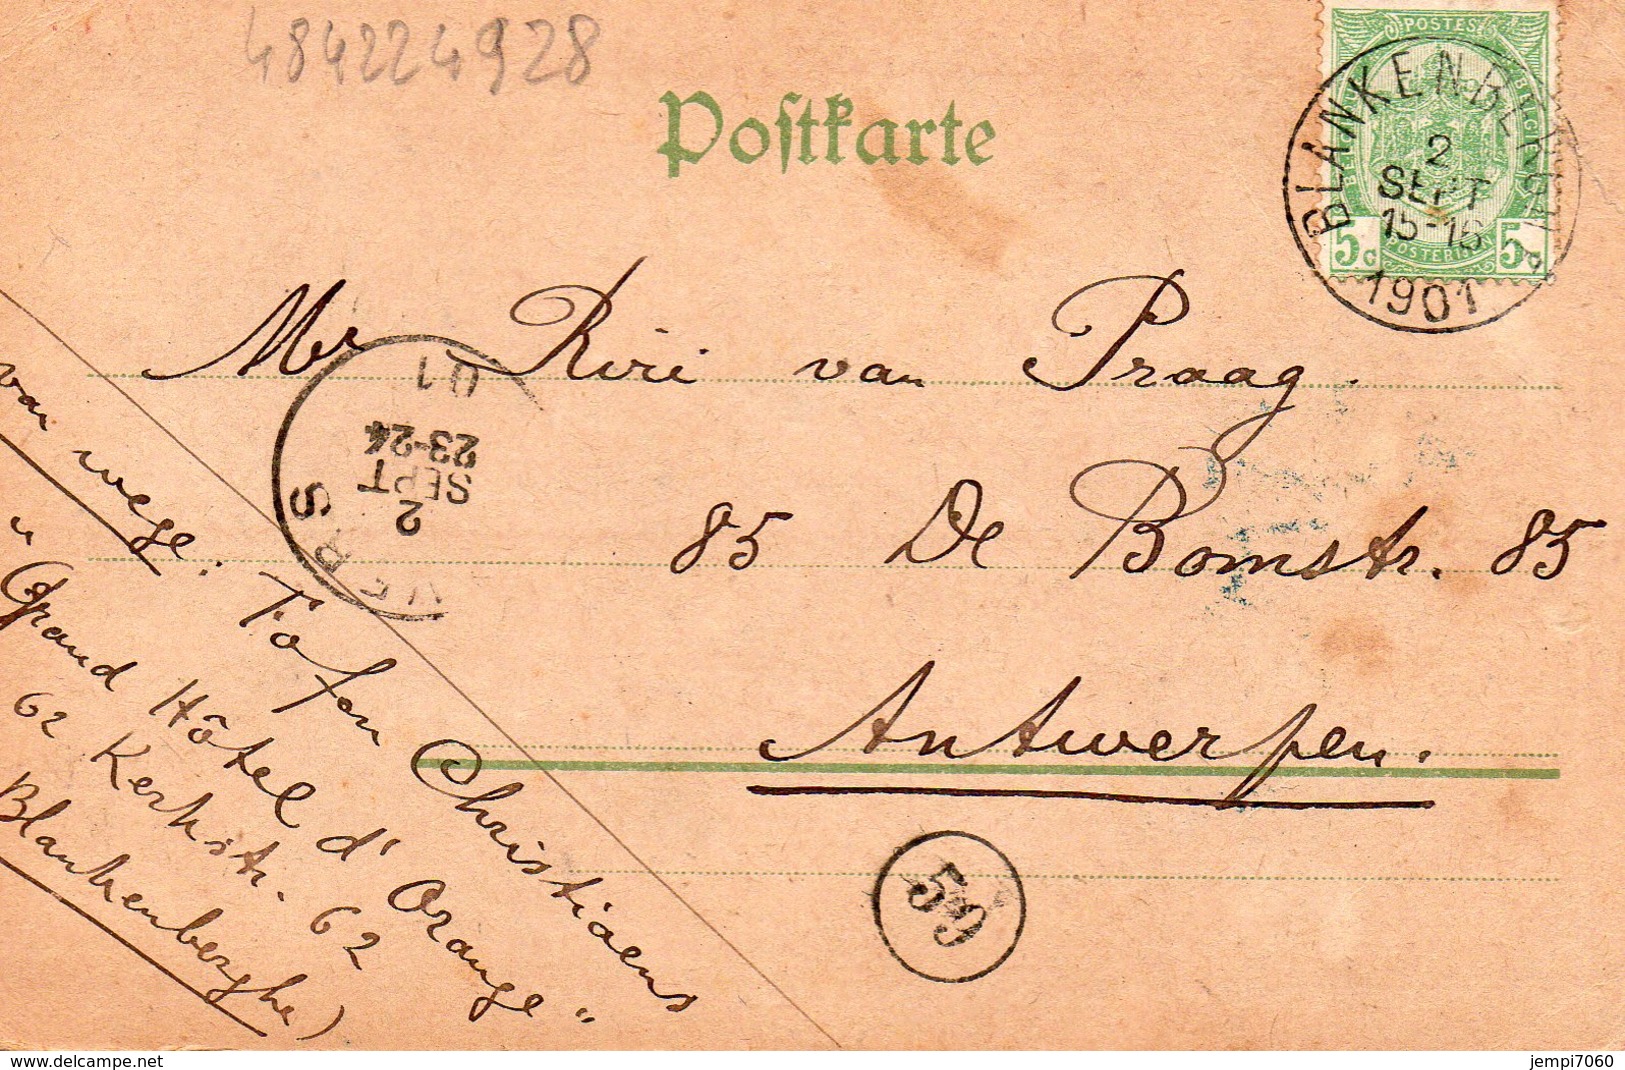 484224928
Postkarte
POSTES
BELGIQUE
5c 5c
BLANKENBERGHE
2
SEPT
15-16
1901
Mr Riri van Praag.
01
23-24
SEPT
2
VERS
85 De Bomstr. 85
Antwerpen.
59
van wege: Tofen Christiaens
"Grand Hôtel d'Orange"
62 Kerkstr. 62
Blankenberghe)
www.delcampe.net
jempi7060